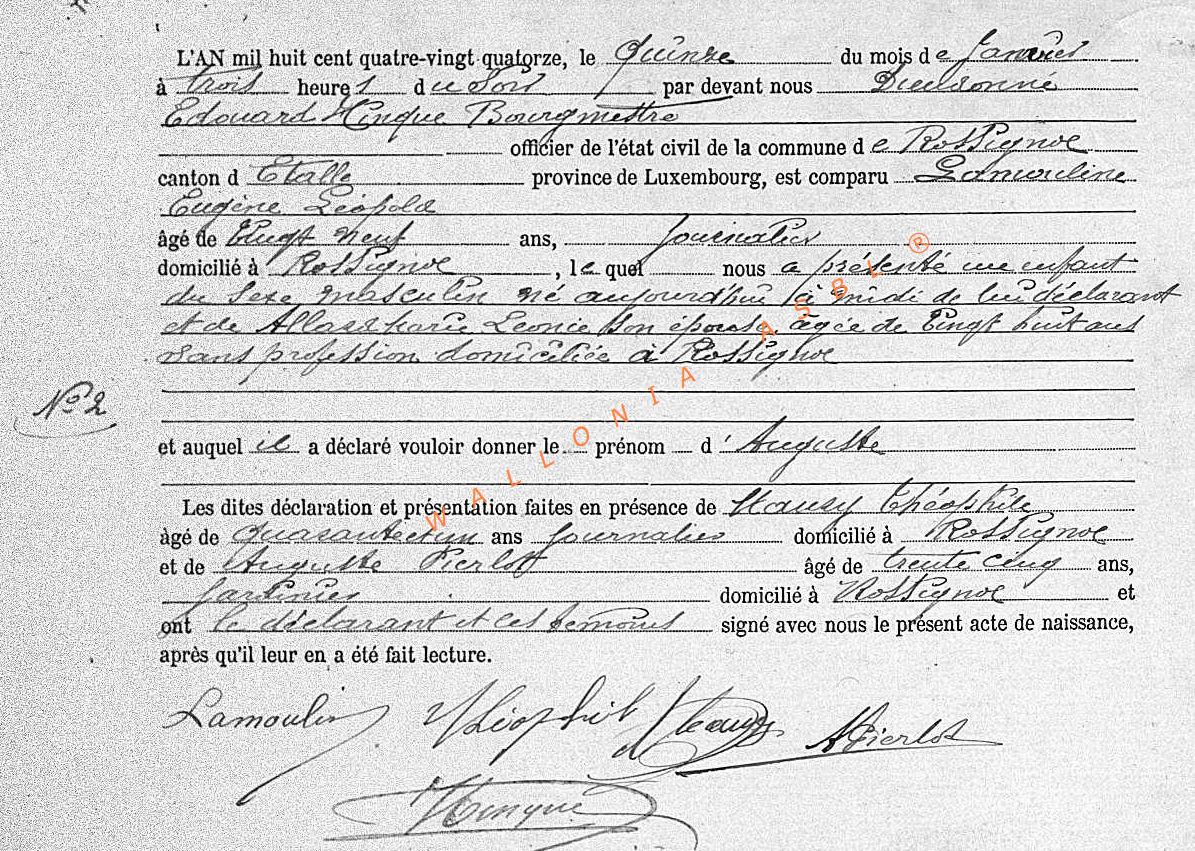 L'AN mil huit cent quatre-vingt quatorze, le Quinze du mois de Janvier
à trois heures du Soir par devant nous Dieudonné
Edouard Hinque Bourgmestre
officier de l'état civil de la commune de Rossignol
canton d Etalle province de Luxembourg, est comparu Lamouline
Eugène Léopold
âgé de Vingt neuf ans, journalier
domicilié à Rossignol, le quel nous a présenté un enfant
du Sexe masculin né aujourd'hui à midi de lui déclarant
et de Allard Marie Leonie son épouse âgée de Vingt huit ans
Sans profession domiciliée à Rossignol
N° 2
et auquel il a déclaré vouloir donner le prénom d'Auguste
Les dites déclaration et présentation faites en présence de Hauzy Théophile
âgé de Quarante et un ans journalier domicilié à Rossignol
et de Auguste Pierlot âgé de trente cinq ans,
Jardinier domicilié à Rossignol et
ont le déclarant et les témoins signé avec nous le présent acte de naissance,
après qu'il leur en a été fait lecture.
Lamoulin Théophile Hauzy APierlot
Hinque
WALLONIA ASBL ®